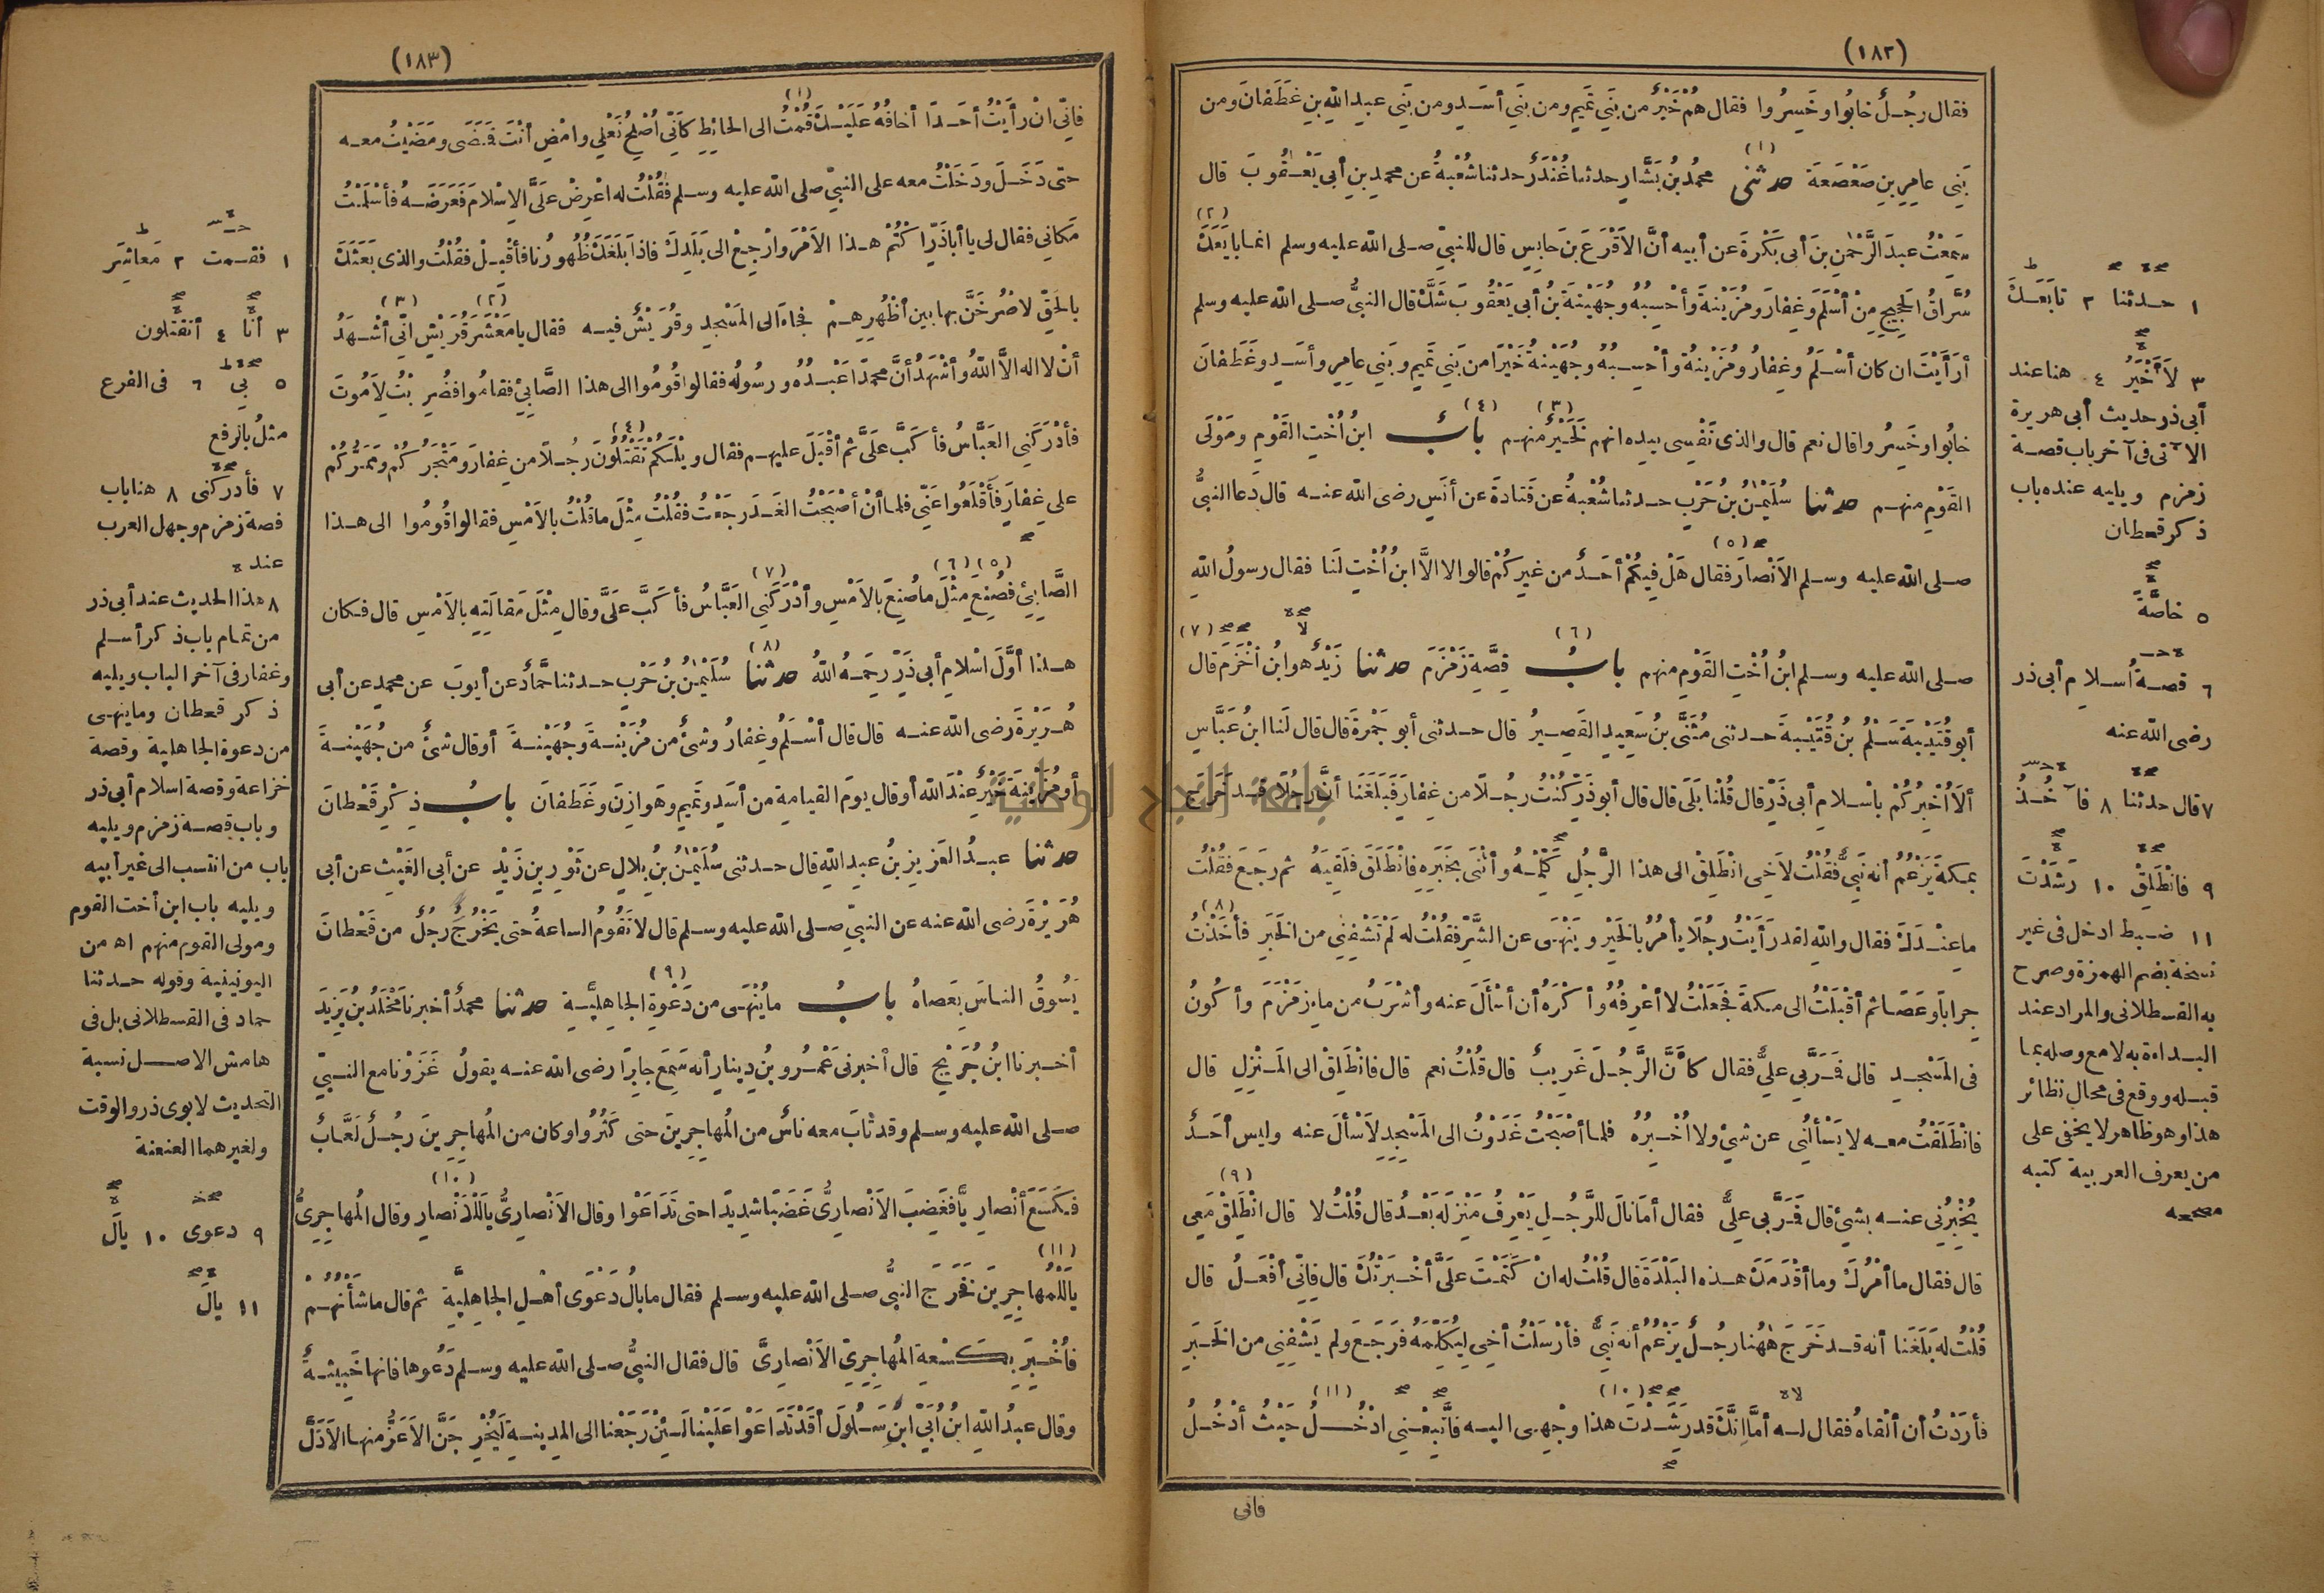 (١٨٢)
فقال رجُلٌ خابُوا وخَسِرُوا فقال هُمْ خَيْرٌ من بَنِي تَمِيمٍ ومن بَنِي أسَدٍ ومن بَنِي عبدِ اللهِ بنِ غَطَفانَ ومن
بَنِي عامِرِ بنِ صَعْصَعَةَ حدثنى (١) محمدُ بنُ بَشَّارٍ حدثنا غُنْدَرٌ حدثنا شُعْبةُ عن محمدِ بنِ أبي يَعْقُوبَ قال
سَمِعْتُ عبدَ الرَّحْمٰنِ بنَ أبى بَكْرةَ عن أبيه أنَّ الاَقْرَعَ بنَ حابِسٍ قال للنبيّ صلى الله عليه وسلم انما بايَعَكَ (٢)
سُرَّاقُ الحَجِيجِ مِنْ أسْلَمَ وغِفارَ ومُزَيْنةَ وأحْسِبُهُ وجُهَيْنةَ بنُ أبى يَعْقُوبَ شَكَّ قال النبيُّ صلى الله عليه وسلم
أرَأيْتَ ان كان أسْلَمُ وغِفارُ ومُزَيْنةُ وأحْسِبُهُ وجُهَيْنةُ خَيْرًا من بَنِي تَمِيمٍ وبَنِي عامِرٍ وأسَدٍ وغَطَفانَ
خابُوا وخَسِرُوا قال نعم قال والذى نَفْسِى بيده انهم لَخَيْرٌ (٣) منهم (٤) بابُ ابنُ أُخْتِ القَوْمِ ومَوْلَى
القَوْمِ منهم حدثنا سُلَيْمٰنُ بنُ حَرْبٍ حدثنا شُعْبةُ عن قَتادةَ عن أنَسٍ رضى الله عنه قال دَعا النبيُّ
صلى الله عليه وسلم الاَنْصارَ (٥) فقال هَلْ فِيكُمْ أحَدٌ من غيرِكُمْ قالوا لا الاَّ ابنُ أُخْتٍ لَنا فقال رسولُ اللهِ
صلى الله عليه وسلم ابنُ أُخْتِ القَوْمِ منهم بابُ (٦) قِصَّةِ زَمْزَمَ حدثنا زَيْدٌ هو ابنُ أَخْزَمَ قال (٧)
أبو قُتَيْبةَ سَلْمُ بنُ قُتَيْبةَ حدثنى مُثَنَّى بنُ سَعِيدٍ القَصِيرُ قال حدثنى أبو جَمْرةَ قال قال لَنا ابنُ عَبَّاسٍ
ألا أُخْبِرُكُمْ باسْلامِ أبى ذَرٍّ قال قُلْنا بَلَى قال قال أبو ذَرٍّ كُنْتُ رجُلاً من غِفارَ فَبَلَغَنَا أنَّ رجُلاً قد خَرَجَ
بمكةَ يَزْعُمُ أنه نَبِيٌّ فقُلْتُ لاَخِى انْطَلِقْ الى هذا الرَّجُلِ كَلِّمْهُ وأْتِنِى بخَبَرِهِ فانْطَلَقَ فلَقِيَهُ ثم رَجَعَ فقُلْتُ
ما عِنْدَكَ فقال واللهِ لقد رَأيْتُ رجُلاً يأمُرُ بالخَيْرِ ويَنْهَى عن الشَّرِّ فقُلْتُ له لَمْ تَشْفِنِى من الخَبَرِ فأخَذْتُ (٨)
جِرابًا وعَصًا ثم أقْبَلْتُ الى مكةَ فجَعَلْتُ لا أعْرِفُهُ وأكْرَهُ أن أسْألَ عنه وأشْرَبُ من ماءِ زَمْزَمَ وأكُونُ
فى المَسْجِدِ قال فَمَرَّ بِى علِيٌّ فقال كأنَّ الرَّجُلَ غَرِيبٌ قال قُلْتُ نعم قال فانْطَلِقْ الى المَنْزِلِ قال
فانْطَلَقْتُ معه لا يَسْألُنِي عن شئٍ ولا أُخْبِرُهُ فلما أصْبَحْتُ غَدَوْتُ الى المَسْجِدِ لاَسْألَ عنه وليس أحَدٌ
يُخْبِرُنِى عنه بشئٍ قال فَمَرَّ بِى علِيٌّ فقال أمَا نالَ للرَّجُلِ يَعْرِفُ مَنْزِلَه بَعْدُ قال قُلْتُ لا قال انْطَلِقْ (٩) مَعِى
قال فقال ما أمْرُكَ وما أقْدَمَكَ هذه البَلْدَةَ قال قُلْتُ له انْ كَتَمْتَ علَىَّ أخْبَرْتُكَ قال فانِّى أفْعَلُ قال
قُلْتُ له بَلَغَنا أنه قد خَرَجَ هٰهُنا رجُلٌ يَزْعُمُ أنه نَبِيٌّ فأرْسَلْتُ أخِى لِيُكَلِّمَهُ فرَجَعَ ولم يَشْفِنِى من الخَبَرِ
فأرَدْتُ أن ألْقاهُ فقال له أمَّا انَّكَ قد رَشَدْتَ (١٠) هذا وجْهِى اليه فاتَّبِعْنِى ادْخُلْ (١١) حَيْثُ أدْخُلُ
فانى
١ حدثنا ٢ تابَعَكَ
٣ لَأَخْيَرُ ٤ هنا عند
أبى ذر حديث أبى هريرة
الآتى فى آخر باب قصة
زمزم ويليه عنده باب
ذكر قحطان
٥ خاصَّةً
٦ قصةُ اسلام أبى ذر
رضى الله عنه
٧ قال حدثنا ٨ فآخُذُ
٩ فانْطَلِقْ ١٠ رَشَدْتَ
١١ ضبط ادخل فى غير
نسخة بضم الهمزة وصرح
به القسطلانى والمراد عند
البداءة به لا مع وصله بما
قبله ووقع فى محال نظائر
هذا وهو ظاهر لا يخفى على
من يعرف العربية كتبه
مصححه
(١٨٣)
فانِّى انْ رأيْتُ أحَدًا أخافُهُ عَلَيْكَ قُمْتُ (١) الى الحائِطِ كأنِّى أُصْلِحُ نَعْلِى وامْضِ أنْتَ فَمَضَى ومَضَيْتُ معه
حتى دَخَلَ ودَخَلْتُ معه على النبيّ صلى الله عليه وسلم فقُلْتُ له اعْرِضْ علَىَّ الاِسْلامَ فعَرَضَهُ فأسْلَمْتُ
مَكانِى فقال لى يا أبا ذَرٍّ اكْتُمْ هذا الاَمْرَ وارْجِعْ الى بَلَدِكَ فاذا بَلَغَكَ ظُهُورُنا فأقْبِلْ فقُلْتُ والذى بَعَثَكَ
بالحَقِّ لاَصْرُخَنَّ بها بين أظْهُرِهِمْ فجاءَ الى المَسْجِدِ وقُرَيْشٌ فيه فقال يا مَعْشَرَ (٢) قُرَيْشٍ انِّى (٣) أشْهَدُ
أنْ لا اله الاَّ اللهُ وأشْهَدُ أنَّ محمدًا عَبْدُهُ ورسُولُه فقالوا قُومُوا الى هذا الصَّابِئِ فقامُوا فضُرِبْتُ لِاَمُوتَ
فأدْرَكَنِى العَبَّاسُ فأكَبَّ علَىَّ ثم أقْبَلَ عليهم فقال ويْلَكُمْ تَقْتُلُونَ (٤) رجُلاً من غِفارَ ومَتْجَرُكُمْ ومَمَرُّكُمْ
على غِفارَ فأقْلَعُوا عَنِّى فلما أنْ أصْبَحْتُ الغَدَ رجَعْتُ فقُلْتُ مِثْلَ ما قُلْتُ بالاَمْسِ فقالوا قُومُوا الى هذا
الصَّابِئِ فصُنِعَ (٥) مِثْلَ (٦) ما صُنِعَ بالاَمْسِ وأدْرَكَنِى (٧) العَبَّاسُ فأكَبَّ علَىَّ وقال مِثْلَ مَقالَتِهِ بالاَمْسِ قال فكان
هذا أوَّلَ اسْلامِ أبى ذَرٍّ رحِمَهُ اللهُ حدثنا (٨) سُلَيْمٰنُ بنُ حَرْبٍ حدثنا حَمَّادٌ عن أيوبَ عن محمدٍ عن أبى
هُرَيْرةَ رضى الله عنه قال قال أسْلَمُ وغِفارُ وشئٌ من مُزَيْنةَ وجُهَيْنةَ أو قال شئٌ من جُهَيْنةَ
أو مُزَيْنةَ خَيْرٌ عِنْدَ الله أو قال يومَ القيامةِ من أسَدٍ وتَمِيمٍ وهَوازِنَ وغَطَفانَ بابُ ذِكْرِ قَحْطانَ
حدثنا عبدُ العَزِيزِ بنُ عبدِ اللهِ قال حدثنى سُلَيْمٰنُ بنُ بِلالٍ عن ثَوْرِ بنِ زَيْدٍ عن أبى الغَيْثِ عن أبى
هُرَيْرةَ رضى الله عنه عن النبيّ صلى الله عليه وسلم قال لا تَقُومُ الساعةُ حتى يَخْرُجَ رجُلٌ من قَحْطانَ
يَسُوقُ الناسَ بِعَصاهُ بابُ ما يُنْهَى من دَعْوةِ (٩) الجاهِلِيَّةِ حدثنا محمدٌ أخبرنا مَخْلَدُ بنُ يَزِيدَ
أخبرنا ابنُ جُرَيْجٍ قال أخبرنى عَمْرُو بنُ دِينارٍ أنه سَمِعَ جابِرًا رضى الله عنه يقولُ غَزَوْنا مع النبيّ
صلى الله عليه وسلم وقد ثابَ معه ناسٌ من المُهاجِرِينَ حتى كَثُرُوا وكان من المُهاجِرِينَ رجُلٌ لَعَّابٌ
فكَسَعَ أنْصارِيًّا فغَضِبَ الاَنْصارِىُّ غَضَبًا شَدِيدًا حتى تَدَاعَوْا وقال الاَنْصارِىُّ يالَلْأَنْصارِ (١٠) وقال المُهاجِرِىُّ
يالَلْمُهاجِرِينَ (١١) فخَرَجَ النبيُّ صلى الله عليه وسلم فقال ما بالُ دَعْوَى أهْلِ الجاهِلِيَّةِ ثم قال ما شَأْنُهُمْ
فأُخْبِرَ بِكَسْعةِ المُهاجِرِىِّ الاَنْصارِىَّ قال فقال النبيُّ صلى الله عليه وسلم دَعُوها فانها خَبِيثةٌ
وقال عبدُ اللهِ ابنُ أُبَىٍّ ابنُ سَلُولَ أقَدْ تَدَاعَوْا عَلَيْنا لَئِنْ رَجَعْنا الى المدينةِ لَيُخْرِجَنَّ الاَعَزُّ منها الاَذَلَّ
١ فقمت ٢ مَعاشِرَ
٣ أنا ٤ أتقتلون
٥ بِى ٦ فى الفرع
مثلُ بالرفع
٧ فأدركنى ٨ هنا باب
قصة زمزم وجهل العرب
عند
٨ هذا الحديث عند أبى ذر
من تمام باب ذكر أسلم
وغفار فى آخر الباب ويليه
ذكر قحطان وما ينهى
من دعوة الجاهلية وقصة
خزاعة وقصة اسلام أبى ذر
وباب قصة زمزم ويليه
باب من انتسب الى غير أبيه
ويليه باب ابن أخت القوم
ومولى القوم منهم اه من
اليونينية وقوله حدثنا
حماد فى القسطلانى بل فى
هامش الاصل نسبة
التحديث لابوى ذر والوقت
ولغيرهما العنعنة
٩ دعوى ١٠ يالَ
١١ يالَ
جامعة النجاح الوطنية